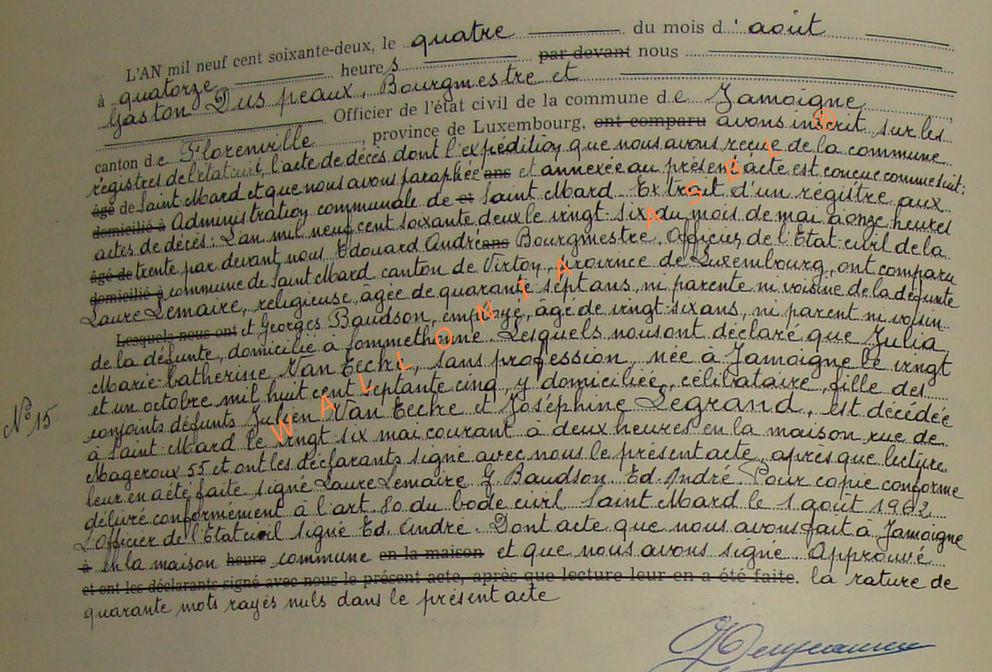 L'AN mil neuf cent soixante-deux, le quatre du mois d'août
à quatorze heures par devant nous
Gaston Duspeaux, Bourgmestre et
Officier de l'état civil de la commune de Jamoigne
canton de Florenville, province de Luxembourg, ont comparu avons inscrit sur les
registres de l'état civil, l'acte de décès dont l'expédition que nous avons reçue de la commune
âgé de Saint Mard et que nous avons paraphée ans et annexée au présent acte est conçue comme suit:
domicilié à Administration communale de et Saint Mard. Extrait d'un registre aux
actes de décès: L'an mil neuf cent soixante deux le vingt-six du mois de mai à onze heures
âgé de trente par devant nous Edouard André ans Bourgmestre, Officier de l'Etat civil de la
domicilié à commune de Saint Mard canton de Virton, Province de Luxembourg, ont comparu
Laure Lemaire, religieuse, âgée de quarante sept ans, ni parente ni voisine de la défunte
Lesquels nous ont et Georges Baudson, employé, âgé de vingt-six ans, ni parent ni voisin
de la défunte, domicilié à Sommethonne. Lesquels nous ont déclaré que Julia
Marie-Catherine Van Eecke, sans profession, née à Jamoigne le vingt
et un octobre mil huit cent septante cinq, y domiciliée, célibataire, fille des
conjoints défunts Julien Van Eecke et Joséphine Legrand, est décédée
N° 15
à Saint-Mard le vingt six mai courant à deux heures en la maison rue de
Mageroux 55 et ont les déclarants signé avec nous le présent acte, après que lecture
leur en a été faite. signé Laure Lemaire G. Baudson Ed. André. Pour copie conforme
délivré conformément à l'art. 80 du Code civil. Saint Mard le 1 août 1962
L'Officier de l'Etat civil signé Ed. André. Dont acte que nous avons fait à Jamoigne
à en la maison heure commune en la maison et que nous avons signé. Approuvé
et ont les déclarants signé avec nous le présent acte, après que lecture leur en a été faite. la rature de
quarante mots rayés nuls dans le présent acte
WALLONIA ASBL ®